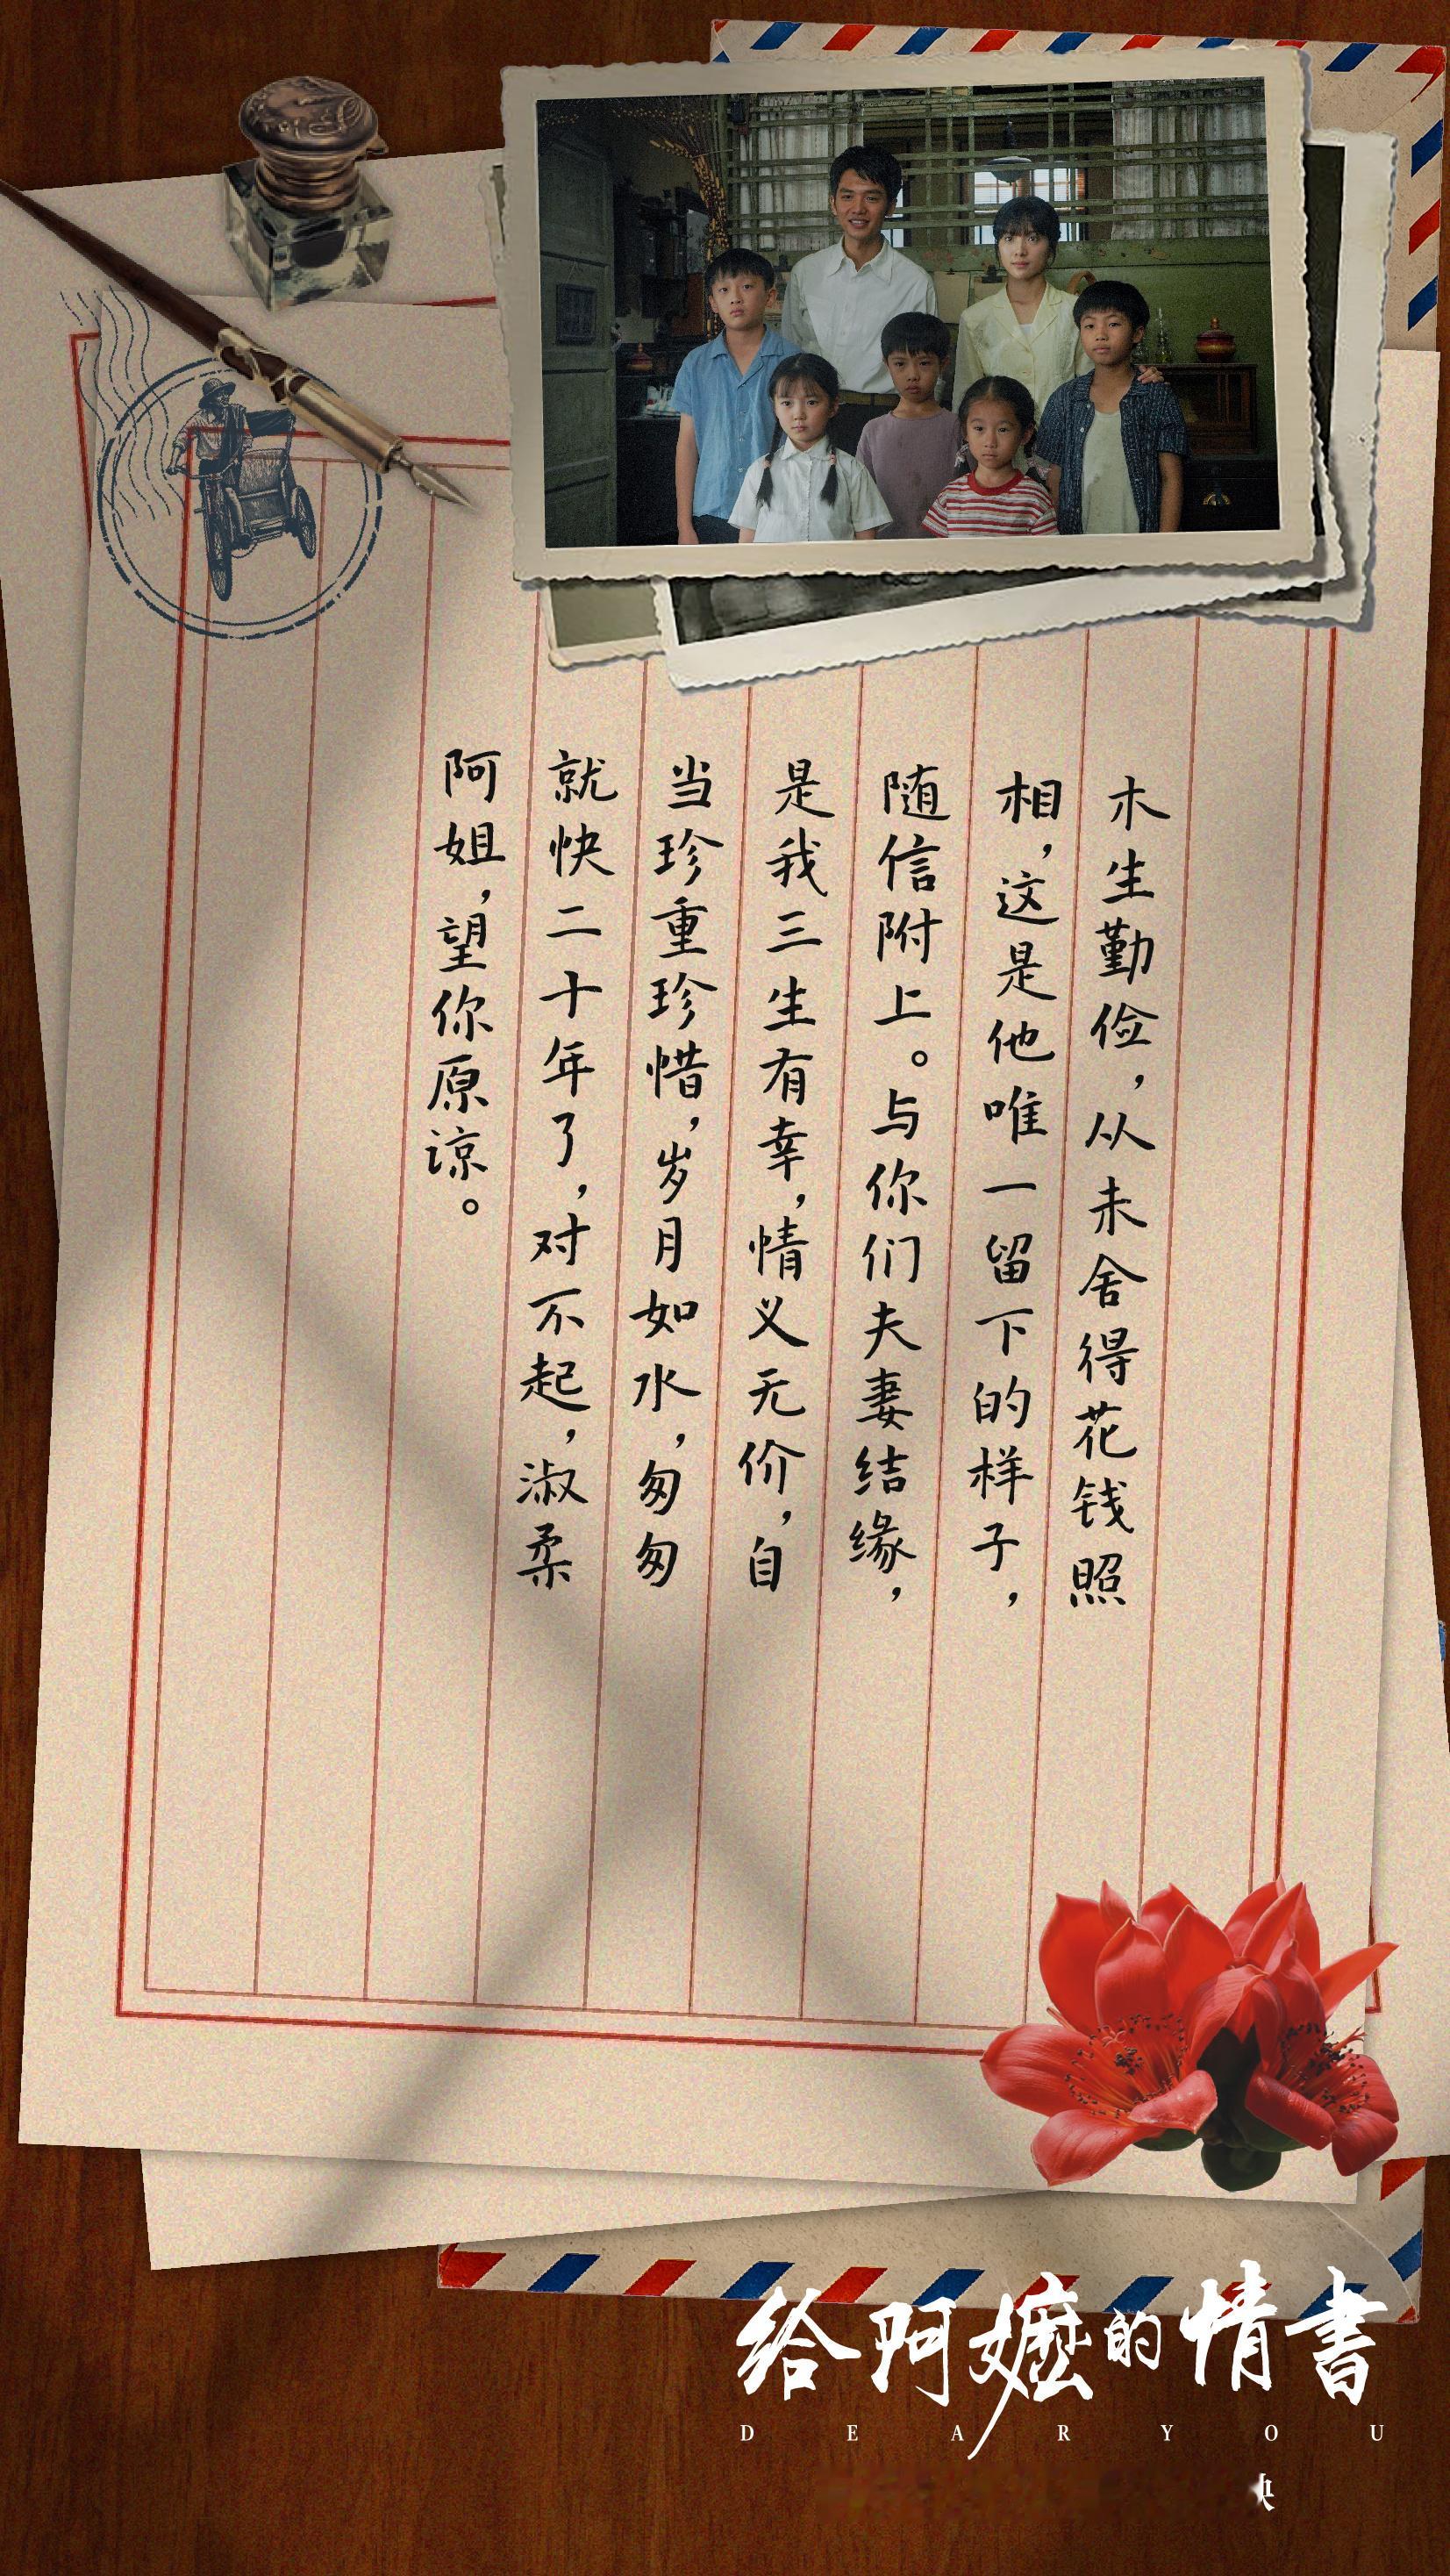 木生勤俭，从未舍得花钱照
相，这是他唯一留下的样子，
随信附上。与你们夫妻结缘，
是我三生有幸，情义无价，自
当珍重珍惜，岁月如水，匆匆
就快二十年了，对不起，淑柔
阿姐，望你原谅。
给阿嬷的情書
DEAR YOU